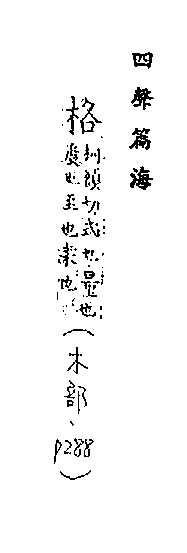 四聲篇海
格 柯額切式也量也
度也至也來也
(木部、P288)